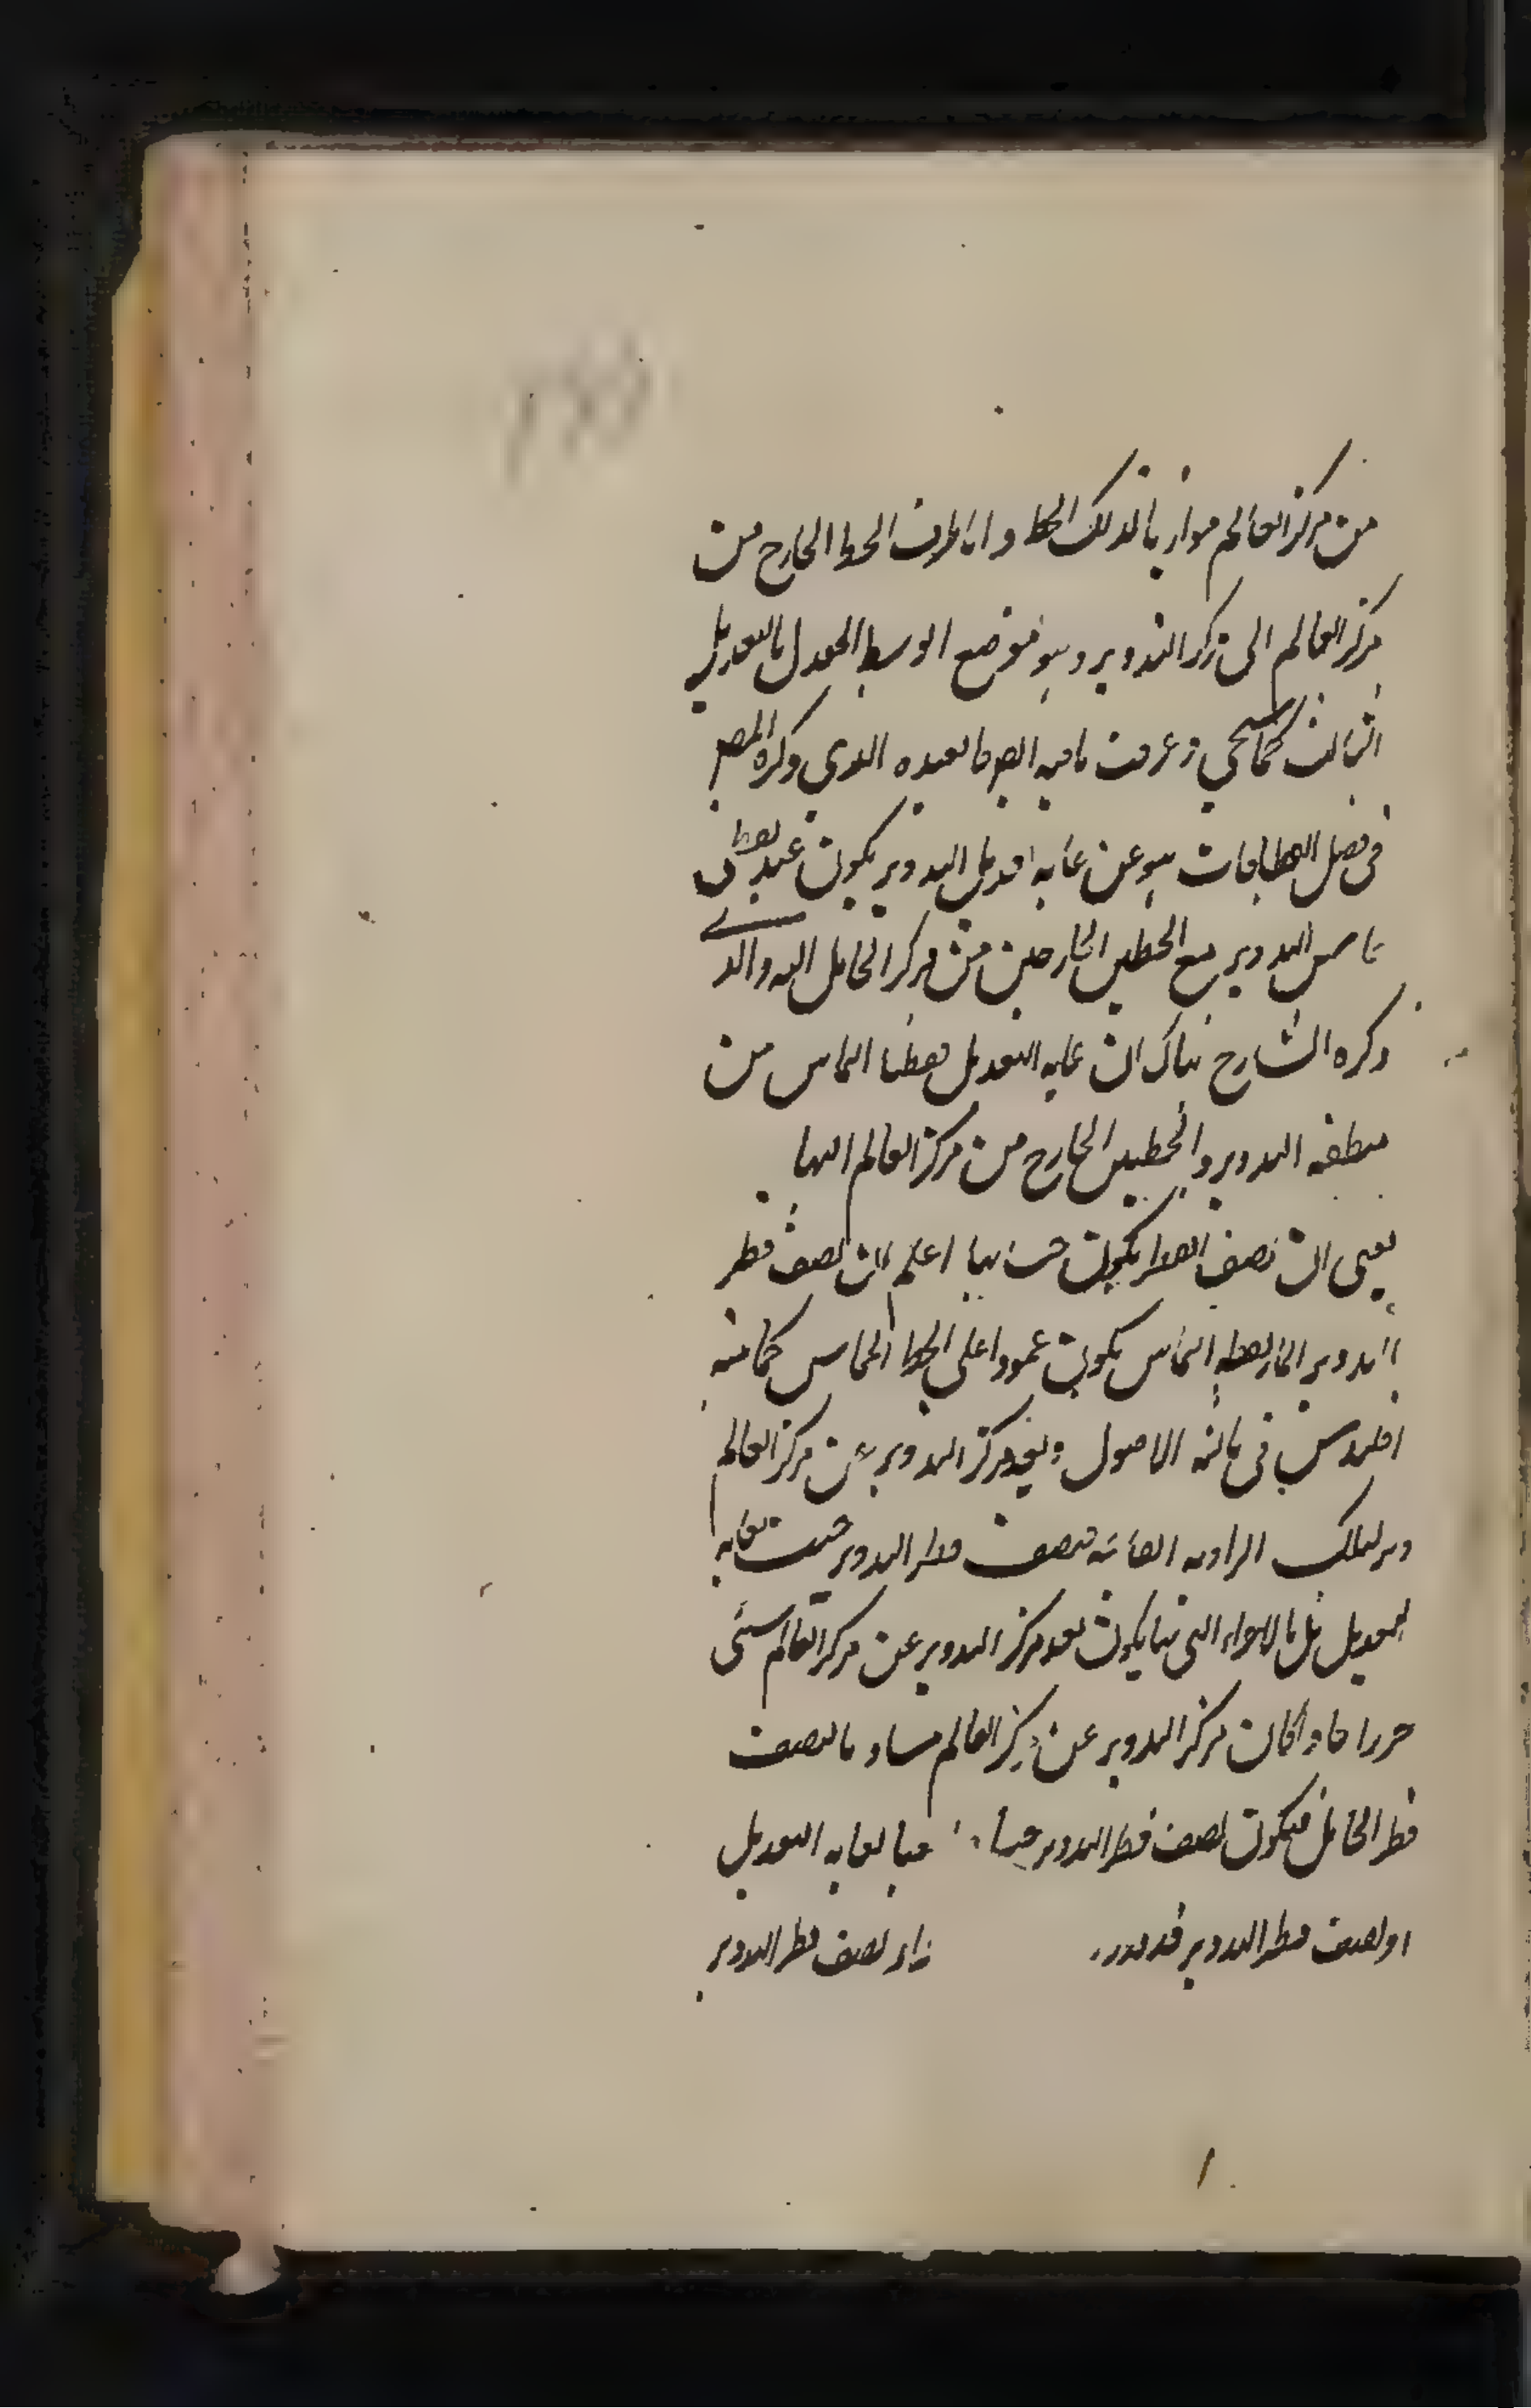 من مركز العالم موازيا لذلك الخط واما طرف الخط الخارج من
مركز العالم الى مركز التدوير وهو موضع الوسط المعدل بالتعديل
الثالث كما سيجي وعرفت ما فيه ايض ما بعده الذي ذكره المص
فى فصل النطاقات هو عن غاية تعديل التدوير يكون عند نقطتى
تماس التدوير مع الخطين الخارجين من مركز الحامل اليه والذى
ذكره الشارح هناك ان غاية التعديل نقطتا التماس من
منطقة التدوير والخطين الخارج من مركز العالم اليها
يعنى ان نصف القطر يكون حينئذ اعلم ان نصف قطر
التدوير المار بنقطة التماس يكون عمودا على الخط المماس كما بينه
اقليدس فى ثالثة الاصول وبعد مركز التدوير عن مركز العالم
وتر لتلك الزاوية القائمة فنصف قطر التدوير جيب لغاية
التعديل بل بالاجزاء التى بها يكون بعد مركز التدوير عن مركز العالم ستين
جزءا فاذا كان مركز التدوير عن مركز العالم مساويا لنصف
قطر الحامل فيكون نصف قطر التدوير جيبا لغاية التعديل
او نصف قطر التدوير نصف قطر التدوير